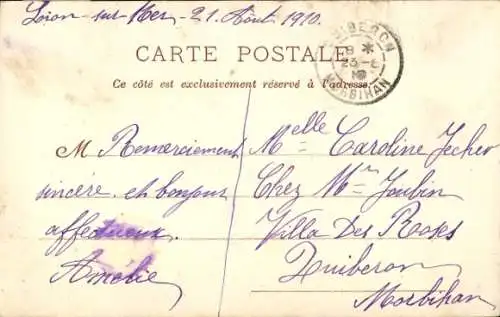 Lion-sur-Mer - 21 Août 1910.
CARTE POSTALE
Ce côté est exclusivement réservé à l'adresse.
QUIBERON
8 *
23-8
10
MORBIHAN
M Remerciement
sincère et bonjour
affectueux.
Amélie
Melle Caroline
Chez Mr Joubin
Villa Des Roses
Quiberon
Morbihan